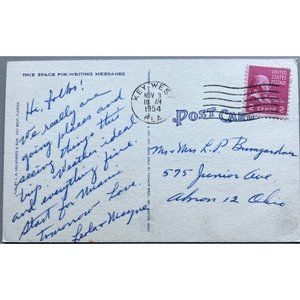 THIS SPACE FOR WRITING MESSAGES
Hi, Folks!
We really are
going places and
seeing things this
trip. Weather ideal
and everything fine.
Start for Miami
tomorrow. Love,
Leda & Wayne
KEY WEST
NOV 3
10 AM
1954
FLA.
2 CENTS 2
POST CARD
Mr & Mrs R. P. Bumgardner
575 Junior Ave.
Akron 12 Ohio